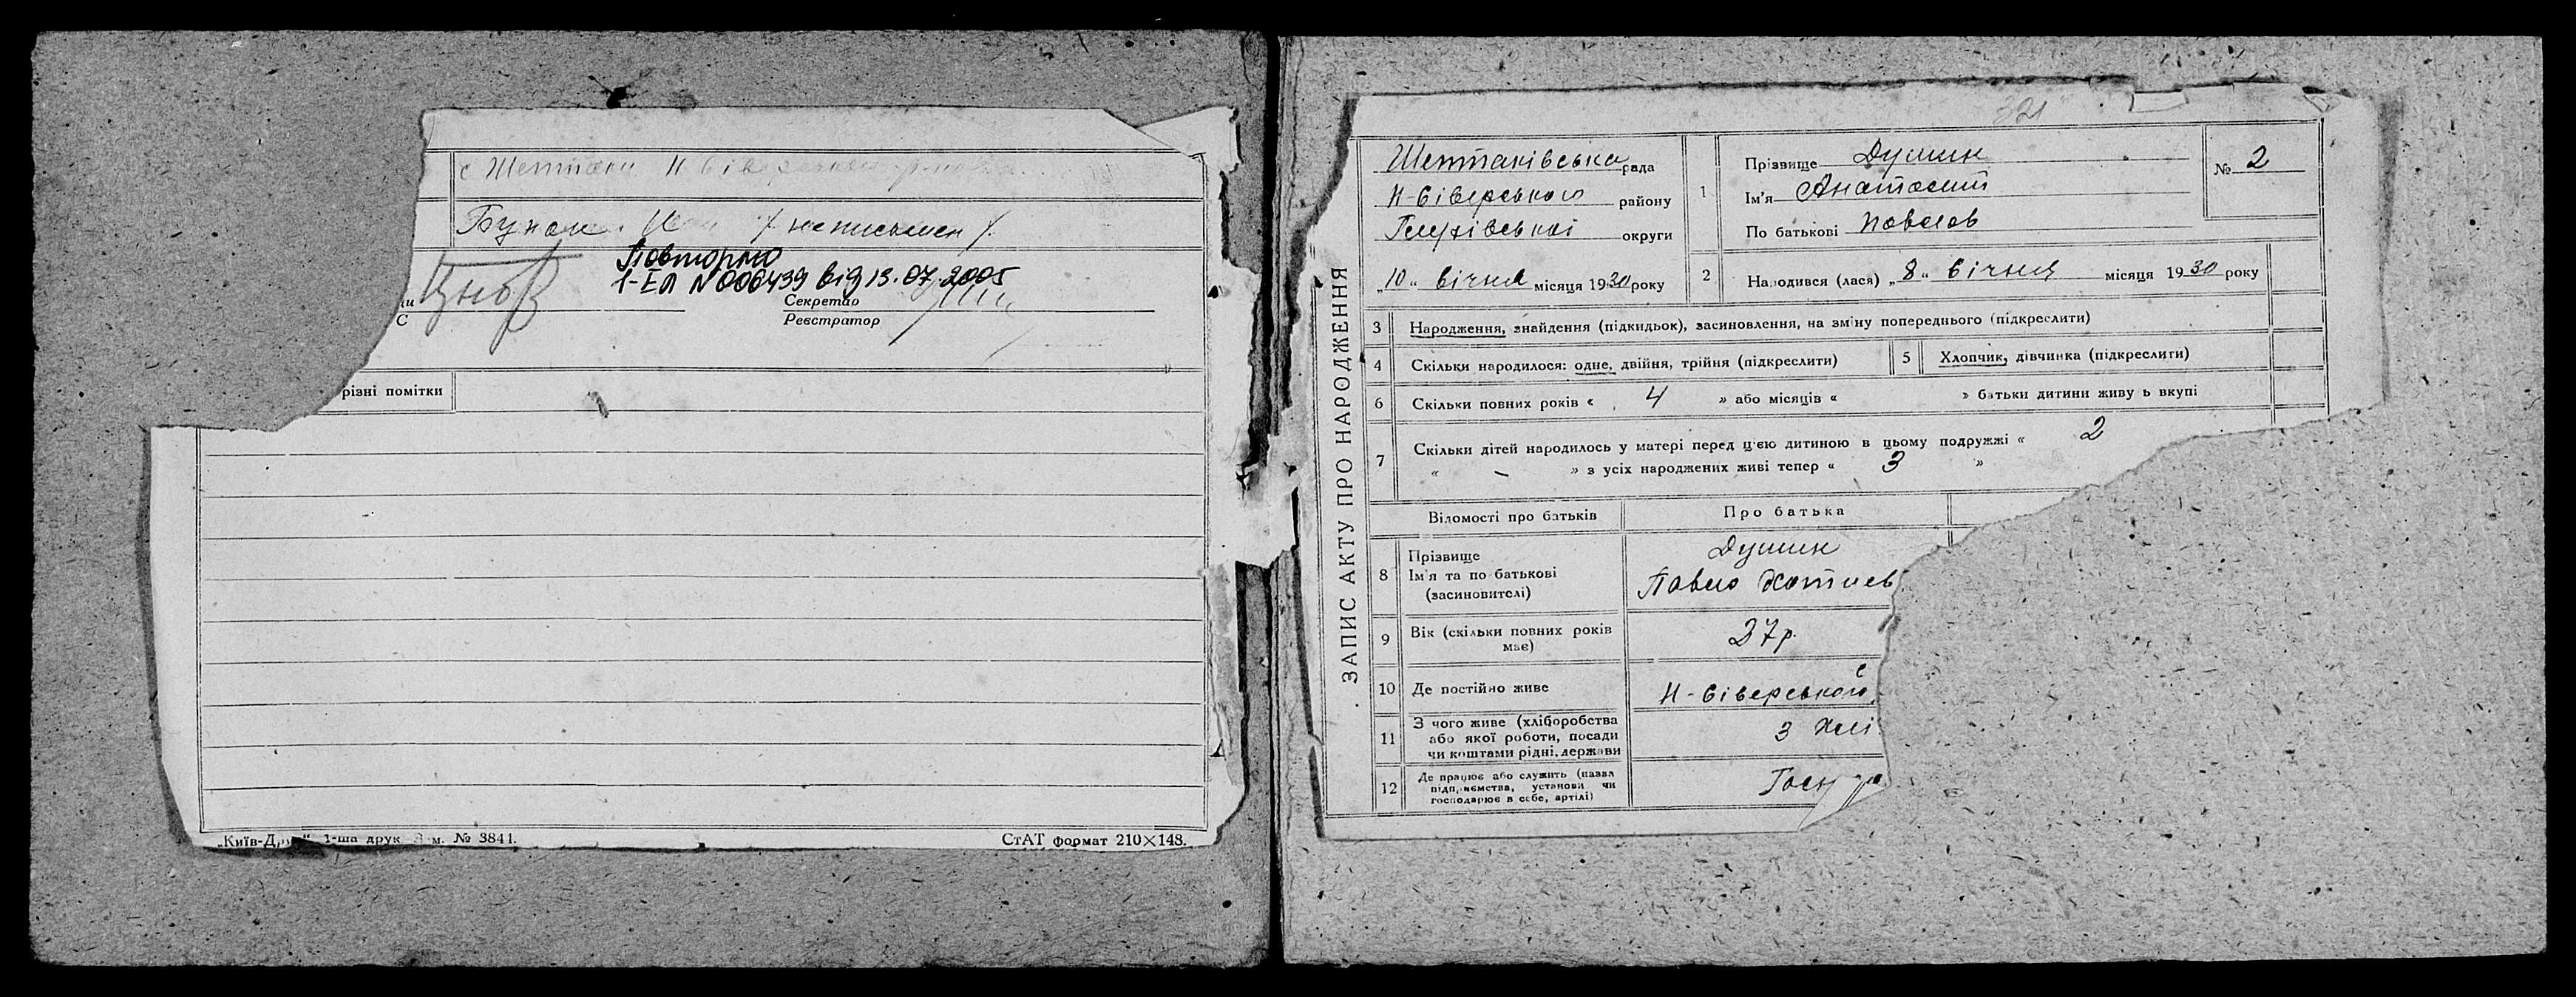 с Шептаки Н Сіверського р-ну
Бунак /неписьмен/.
Повторно
1-ЕЛ N 006439 від 13.07.2005
Секретар
Реєстратор
різні помітки
„Київ-Друк“ 1-ша друк Зам. № 3841.
СтАТ формат 210×148.
321
ЗАПИС АКТУ ПРО НАРОДЖЕННЯ
Шептаківська рада
Н-Сіверського району
Глухівської округи
„10“ січня місяця 1930 року
1
Прізвище Душин
Ім'я
По батькові Павлов
№ 2
2 Народився (лася) „8“ січня місяця 1930 року
3 Народження, знайдення (підкидьок), засиновлення, на зміну попереднього (підкреслити)
4 Скільки народилося: одне, двійня, трійня (підкреслити)
5 Хлопчик, дівчинка (підкреслити)
6 Скільки повних років « 4 » або місяців « » батьки дитини живуть вкупі
7 Скільки дітей народилось у матері перед цією дитиною в цьому подружжі « 2
« – » з усіх народжених живі тепер « 3 »
Відомості про батьків
Про батька
8 Прізвище
Ім'я та по батькові
(засиновителі)
Душин
Павло
9 Вік (скільки повних років
має)
37р.
10 Де постійно живе
с
Н-Сіверського
11 З чого живе (хліборобства
або якої роботи, посади
чи коштами рідні, держави
З хлі
12 Де працює або служить (назва
підприємства, установи чи
господарює в себе, артілі)